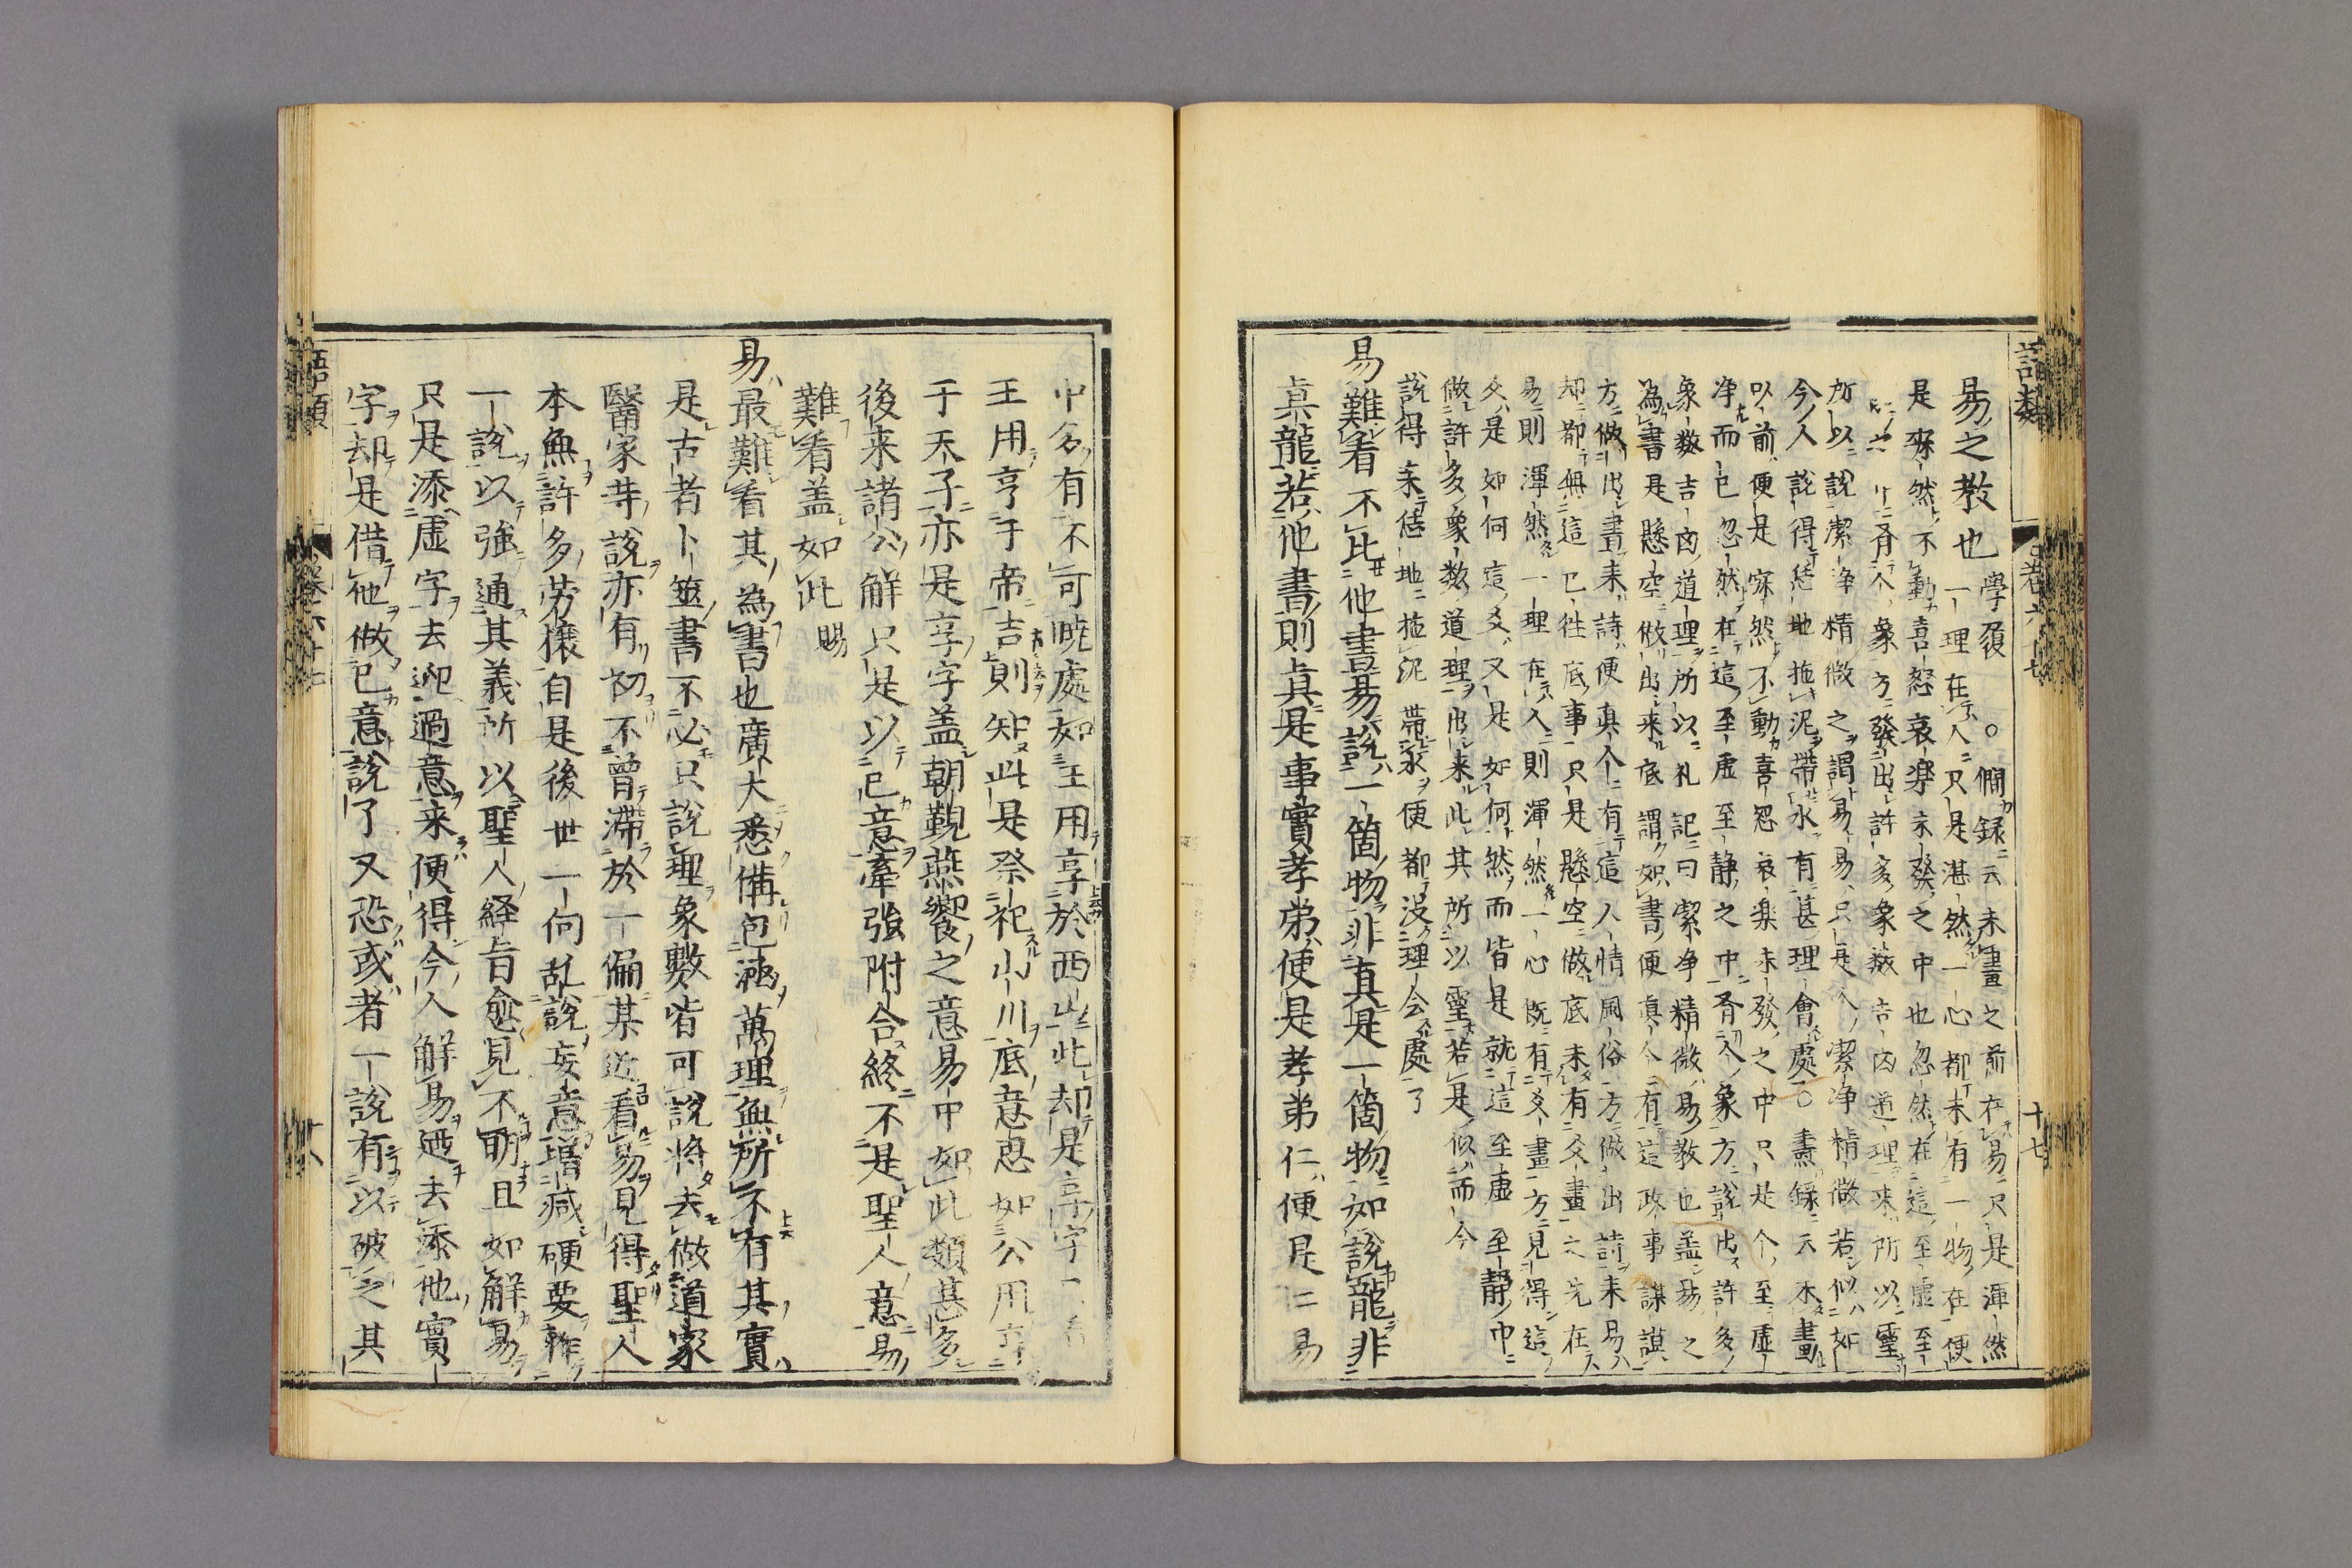 語類 卷六十七 十七
易之教也 學履 ○ 僩録云未畫之前在易只是渾然
一理在人只是湛然一心都未有一物在便
是寂然不動喜怒哀樂未發之中也忽然在這至虛至
静之中有个象方發出許多象數吉凶道理來所以靈
所以說潔净精微之謂易易只是个潔净精微若似如
今人說得恁地拖泥帶水有甚理會處○燾録云未畫
以前便是寂然不動喜怒哀樂未發之中只是个至虛
净而已忽然在這至虛至静之中有个象方說出許多
象數吉凶道理所以礼記曰潔净精微易教也盖易之
為書是懸空做出來底謂如書便真个有這政事謀謨
方做出書来詩便真个有這人情風俗方做出詩来易
却都無這已往底事只是懸空做底未有爻畫之先在
易則渾然一理在人則渾然一心既有爻畫方見得這
爻是如何這爻又是如何然而皆是就這至虛至静中
做許多象數道理出來此其所以靈若是似而今
說得来恁地拖泥帶水便都没理會處了
易難看不比他書易說一箇物非真是一箇物如說龍非
真龍若他書則真是事實孝弟便是孝弟仁便是仁易
中多有不可曉處如王用享於西山此却是享字
王用亨于帝吉則知此是祭祀山川底意思如公用亨
于天子亦是享字盖朝覲燕饗之意易中如此類甚多
後来諸公解只是以已意牽強附合終不是聖人意易
難看盖如此賜
易最難看其為書也廣大悉備包涵萬理無所不有其實
是古者卜筮書不必只說理象數皆可說將去做道家
醫家等說亦有初不曾滯於一偏某近看易見得聖人
本無許多勞攘自是後世一向乱說妄意增減硬要作
一說以強通其義所以聖人経旨愈見不明且如解易
只是添虛字去迎過意来便得今人解易廼去添他實
字却是借他做已意說了又恐或者一說有以破之其
語類 卷六十七 十八